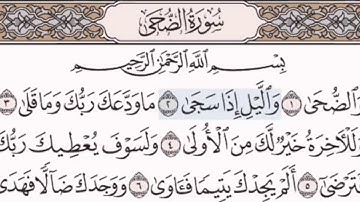 سُورَةُ الضُّحَىٰ
بِسْمِ اللَّهِ الرَّحْمَٰنِ الرَّحِيمِ
وَالضُّحَىٰ ١ وَاللَّيْلِ إِذَا سَجَىٰ ٢ مَا وَدَّعَكَ رَبُّكَ وَمَا قَلَىٰ ٣
وَلَلْآخِرَةُ خَيْرٌ لَّكَ مِنَ الْأُولَىٰ ٤ وَلَسَوْفَ يُعْطِيكَ رَبُّكَ
فَتَرْضَىٰ ٥ أَلَمْ يَجِدْكَ يَتِيمًا فَـَٔاوَىٰ ٦ وَوَجَدَكَ ضَالًّا فَهَدَىٰ